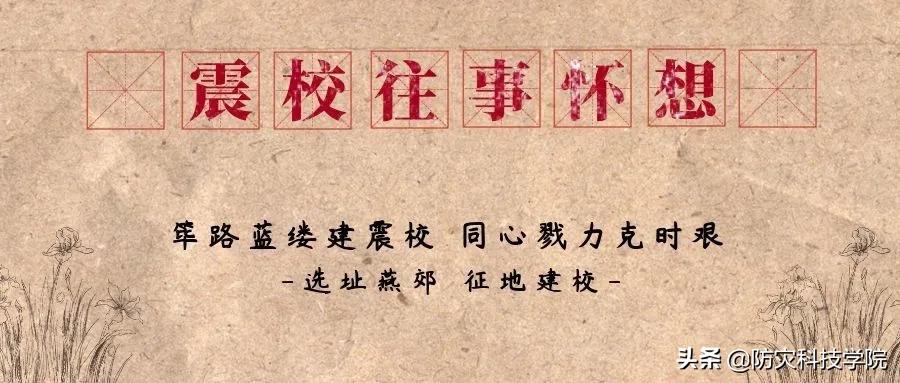 震校往事怀想
筚路蓝缕建震校 同心戮力克时艰
-选址燕郊 征地建校-
头条 @防灾科技学院